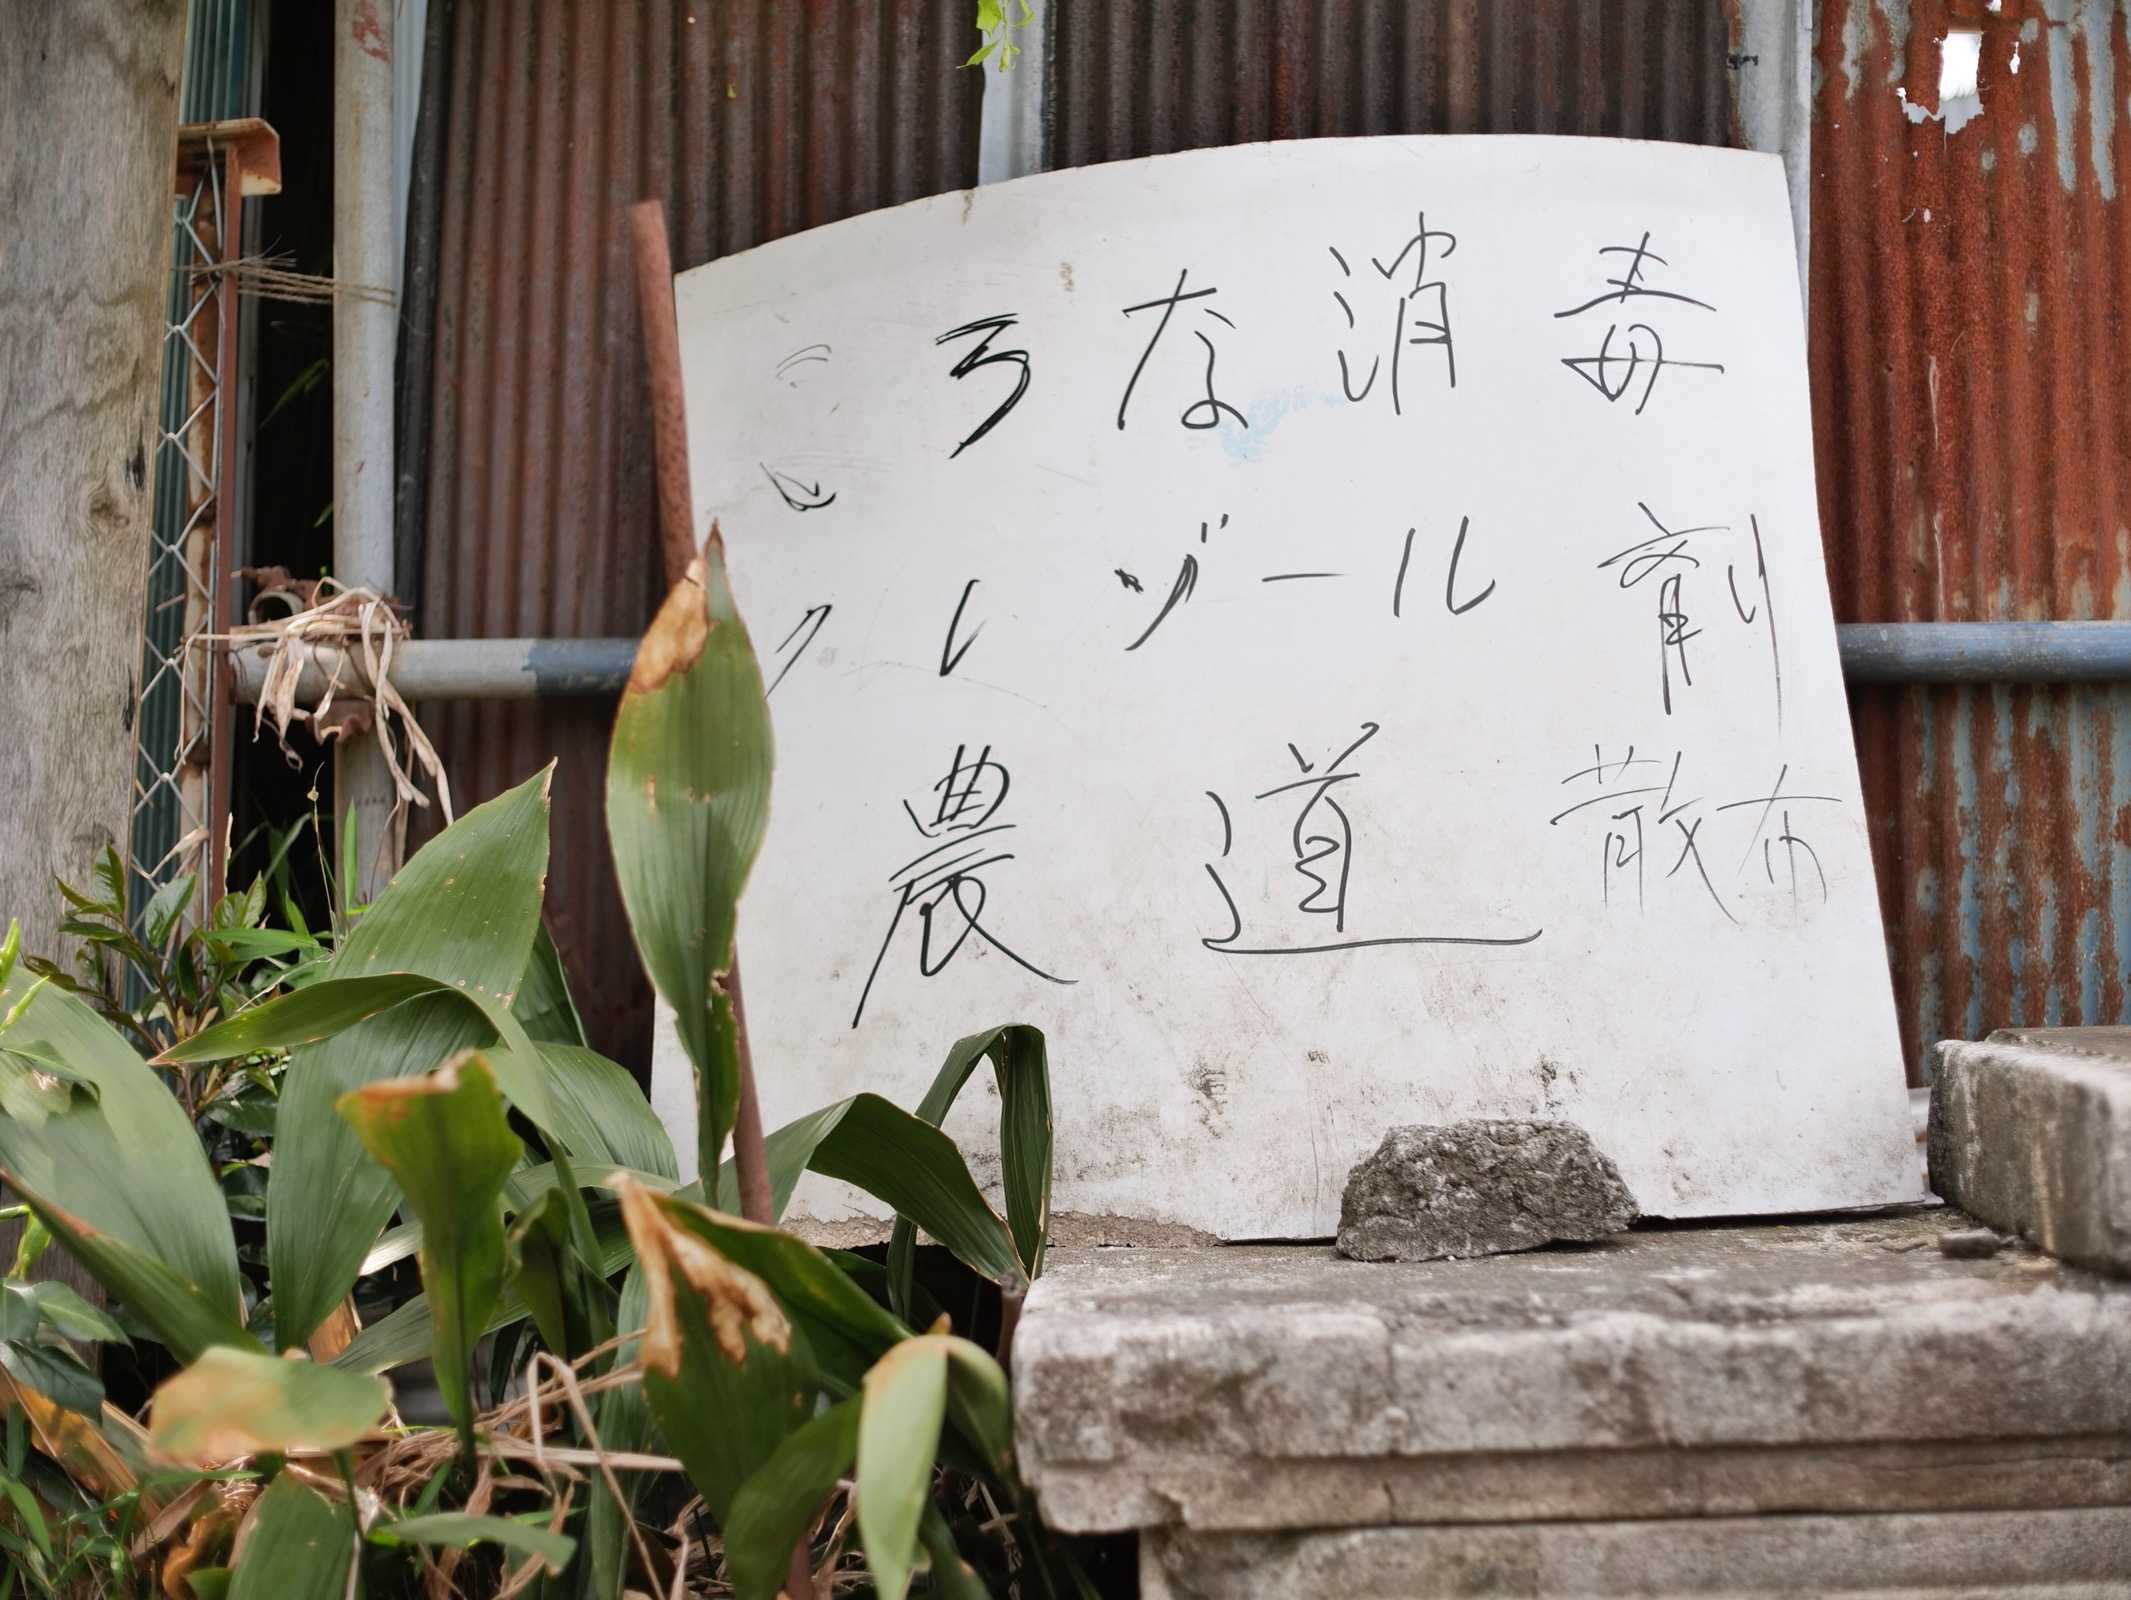 ころな消毒
クレゾール剤
農道散布